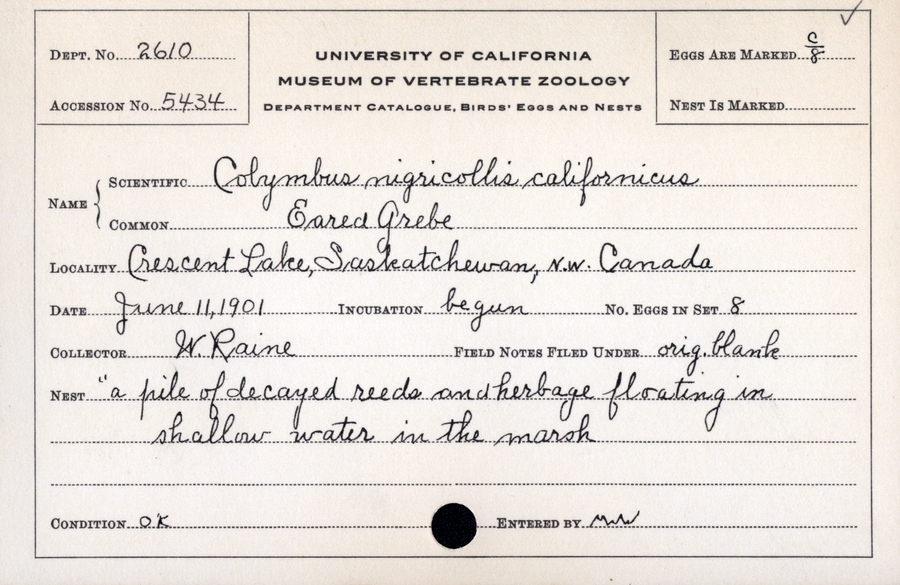 DEPT. No. 2610
ACCESSION No. 5434
UNIVERSITY OF CALIFORNIA
MUSEUM OF VERTEBRATE ZOOLOGY
DEPARTMENT CATALOGUE, BIRDS' EGGS AND NESTS
EGGS ARE MARKED c/8
NEST IS MARKED
NAME
SCIENTIFIC Colymbus nigricollis californicus
COMMON Eared Grebe
LOCALITY Crescent Lake, Saskatchewan, N.W. Canada
DATE June 11, 1901 INCUBATION begun No. EGGS IN SET 8
COLLECTOR W. Raine FIELD NOTES FILED UNDER orig. blank
NEST "a pile of decayed reeds and herbage floating in
shallow water in the marsh
CONDITION OK ENTERED BY